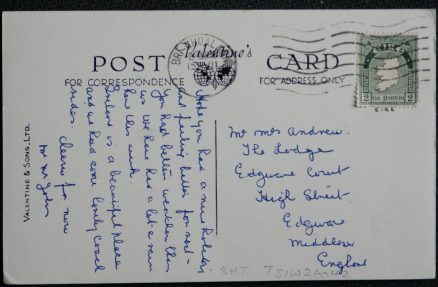 POST
Valentine's
CARD
FOR CORRESPONDENCE
FOR ADDRESS ONLY
2
EIRE
VALENTINE & SONS, LTD.
Hope you had a nice holiday
and feeling better for rest -
You had better weather than
us. We have had a lot of rain
Ireland is a beautiful place
and we had some lovely coach
rides. Cheerio for now
Mr Mrs Andrew.
The Lodge
Edgware Court
High Street
Edgware
Middlesex
England
SH7